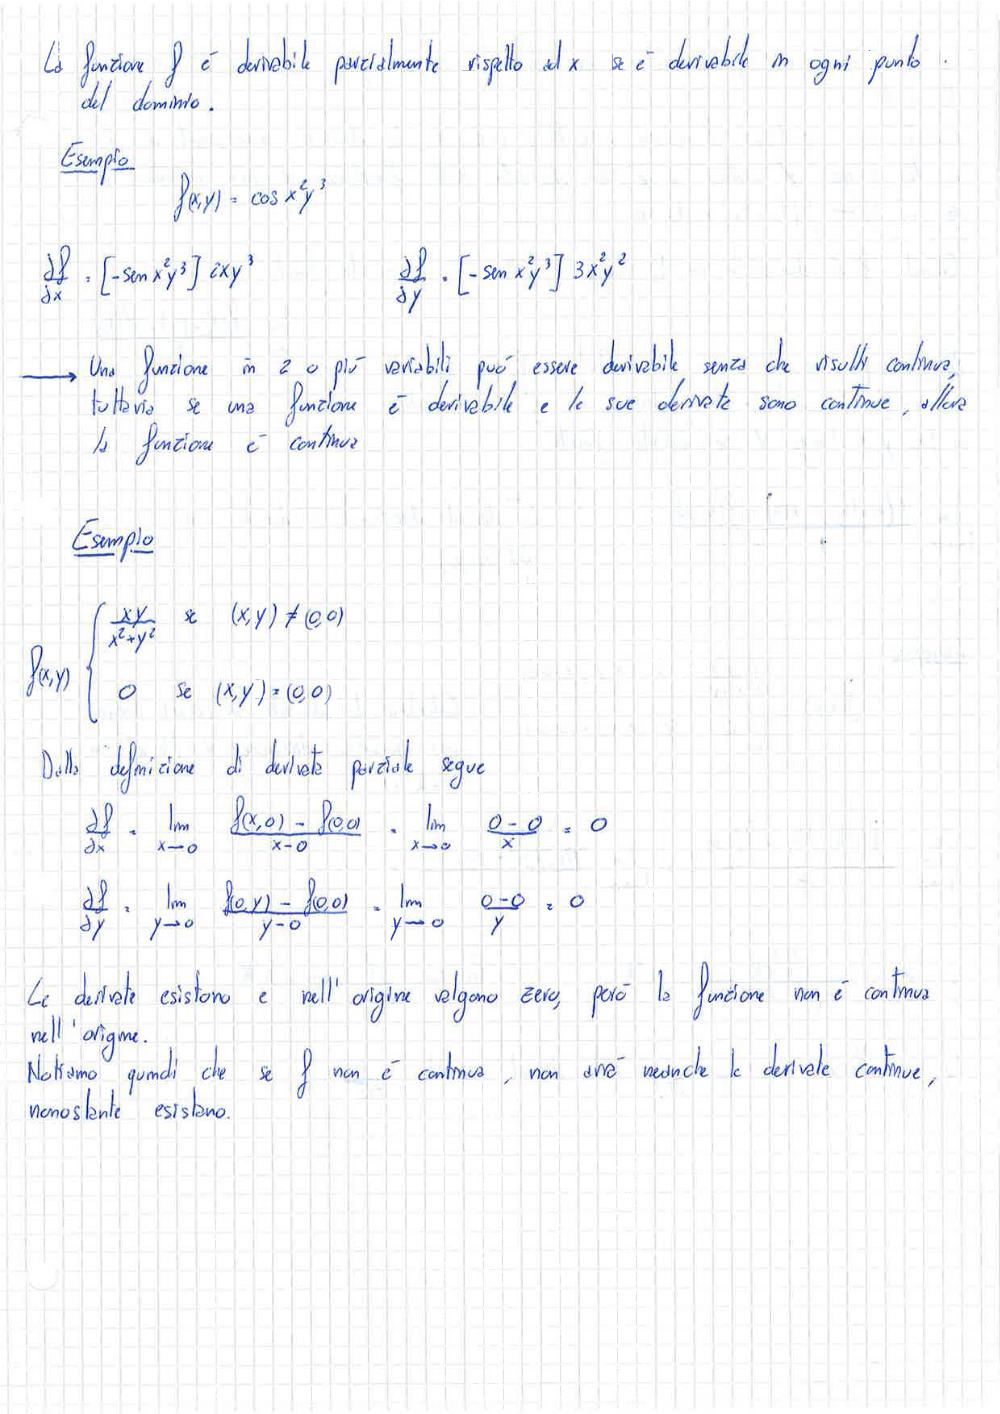 La funzione f è derivabile parzialmente rispetto ad x se è derivabile in ogni punto
del dominio.
Esempio
f(x,y) = cos x²y³
∂f/∂x = [-sen x²y³] 2xy³    ∂f/∂y = [-sen x²y³] 3x²y²
→ Una funzione in 2 o più variabili può essere derivabile senza che risulti continua,
tuttavia se una funzione è derivabile e le sue derivate sono continue, allora
la funzione è continua
Esempio
f(x,y) { xy/(x²+y²) se (x,y) ≠ (0,0)
0 se (x,y) = (0,0)
Dalla definizione di derivata parziale segue
∂f/∂x = lim x→0 (f(x,0) - f(0,0))/(x-0) = lim x→0 (0-0)/x = 0
∂f/∂y = lim y→0 (f(0,y) - f(0,0))/(y-0) = lim y→0 (0-0)/y = 0
Le derivate esistono e nell'origine valgono zero, però la funzione non è continua
nell'origine.
Notiamo quindi che se f non è continua, non avrà neanche le derivate continue,
nonostante esistano.